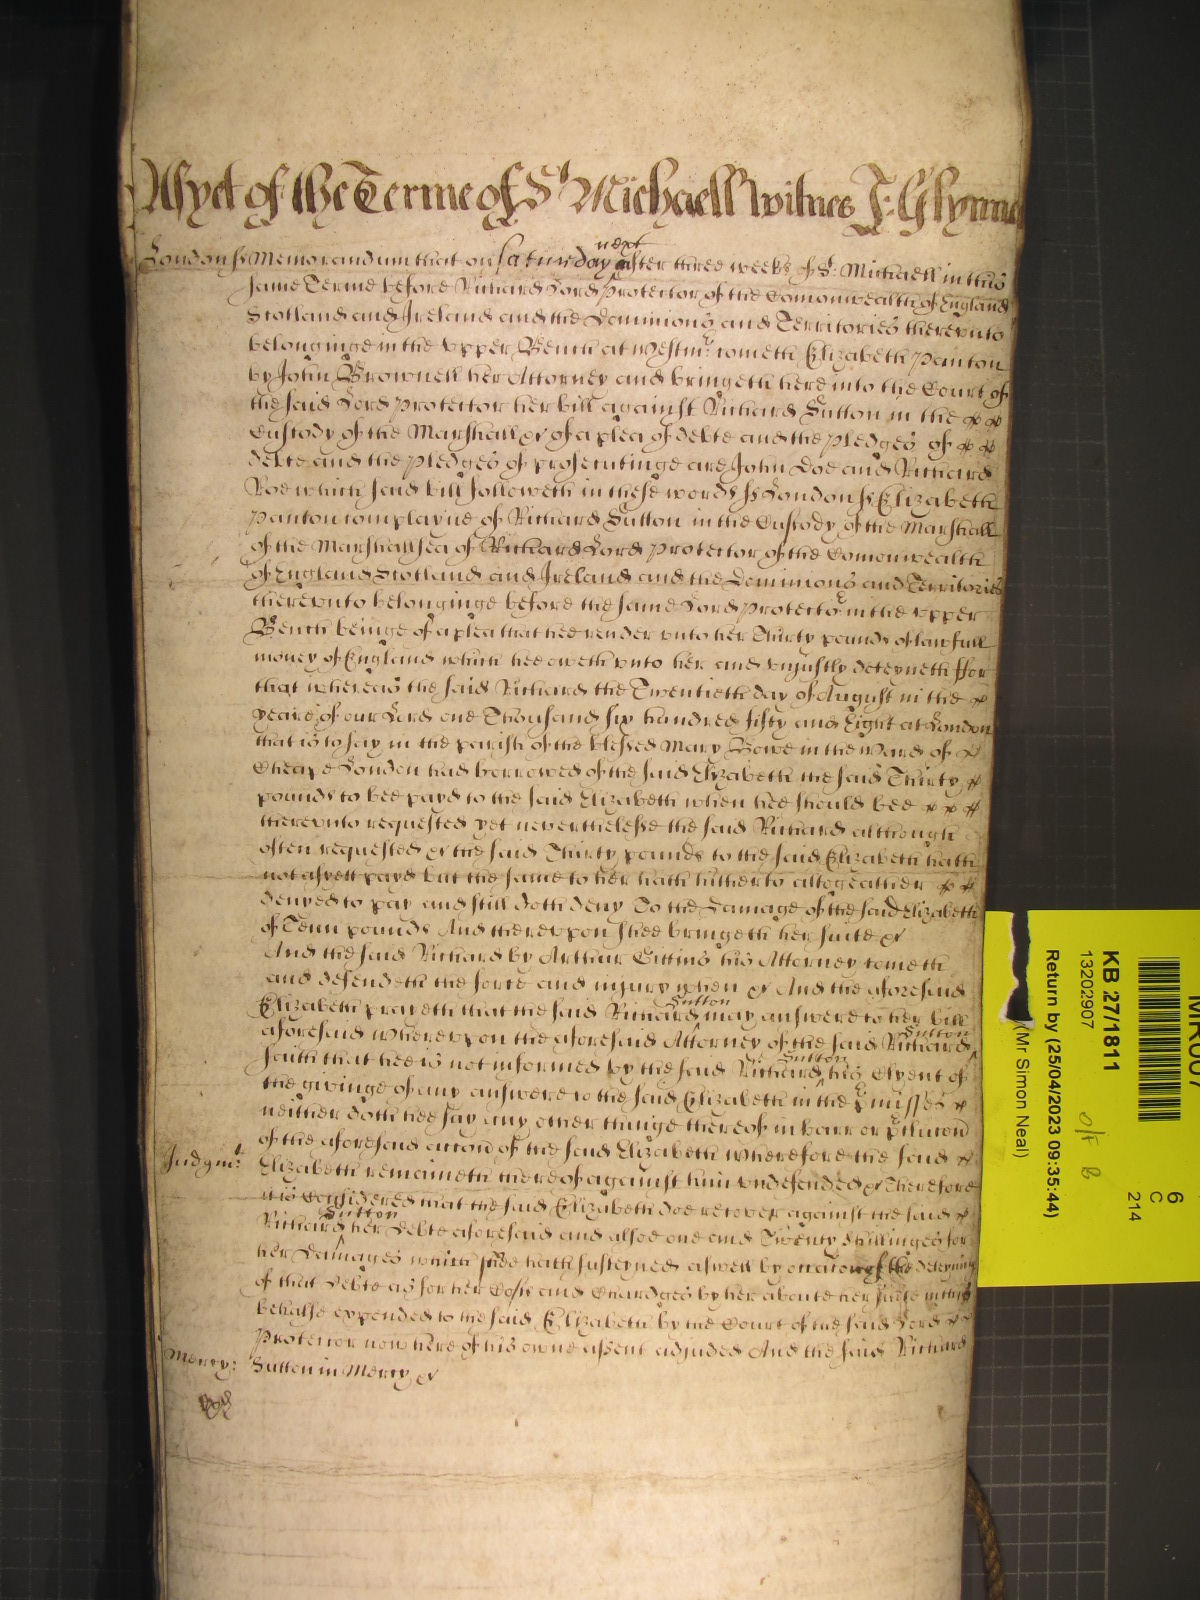 Asyet of the Terme of St Michaell Witnes J: Glynne
next
London ss Memorandum that on Saturday after three weeks of St: Michaell in this
same Terme before Richard Lord Protector of the Comonwealth of England
Scotland and Ireland and the Dominions and Territories therevnto
belonginge in the vpper Bench at Westmr: cometh Elizabeth Panton
by John Brownell her Attorney and bringeth here into the Court of
the said Lord Protector her bill against Richard Sutton in the
Custody of the Marshall &c of a plea of debte and the pledges of
debte and the pledges of prosecutinge are John Doe and Richard
Roe which said bill followeth in these words ss London ss Elizabeth
Panton complayne of Richard Sutton in the Custody of the Marshall
of the Marshallsea of Richard Lord Protector of the Comonwealth
of England Scotland and Ireland and the Dominions and Territories
therevnto belonginge before the same Lord Protector in the vpper
Bench beinge of a plea that hee render vnto her Thirty pounds of lawfull
money of England which hee oweth vnto her and vnjustly deteyneth ffor
that whereas the said Richard the Twentieth day of August in the
yeare of our Lord one Thousand six hundred fifty and Eight at London
that is to say in the parish of the blessed Mary Bowe in the Ward of
Cheape London had borrowed of the said Elizabeth the said Thirty
pounds to bee payd to the said Elizabeth when hee should bee
therevnto requested yet neverthelesse the said Richard although
often requested &c the said Thirty pounds to the said Elizabeth hath
not asyett payd but the same to her hath hitherto altogeather
denyed to pay and still doth deny To the damage of the said Elizabeth
of Tenn pounds And therevpon shee bringeth her suite &c
And the said Richard by Arthur Cuttins his Attorney cometh
and defendeth the force and injury when &c And the aforesaid
Sutton
Elizabeth prayeth that the said Richard may answere to her bill
Sutton
aforesaid wherevpon the aforesaid Attorney of the said Richard
Sutton
saith that hee is not informed by the said Richard his Clyent of
the givinge of any answere to the said Elizabeth in the p̱misses
neither doth hee say any other thinge thereof in barr or p̱clucon
of the aforesaid accon of the said Elizabeth wherefore the said
Judgmt: Elizabeth remaineth thereof against him vndefended &c Therefore
it is Considered that the said Elizabeth doe recover against the said
Sutton
Richard her Debte aforesaid and alsoe one and Twenty shillinges for
her Damages which shee hath susteyned aswell by occacon of the deteyning
of that Debte as for her Costs and Chardges by her aboute her suite in this
behalfe expended to the said Elizabeth by the Court of the said Lord
Protector now here of his owne assent adjuded And the said Richard
Mercy: Sutton in Mercy &c
MR007
KB 27/1811
13202907
Return by (25/04/2023 09:35:44)
(Mr Simon Neal)
6
C
214